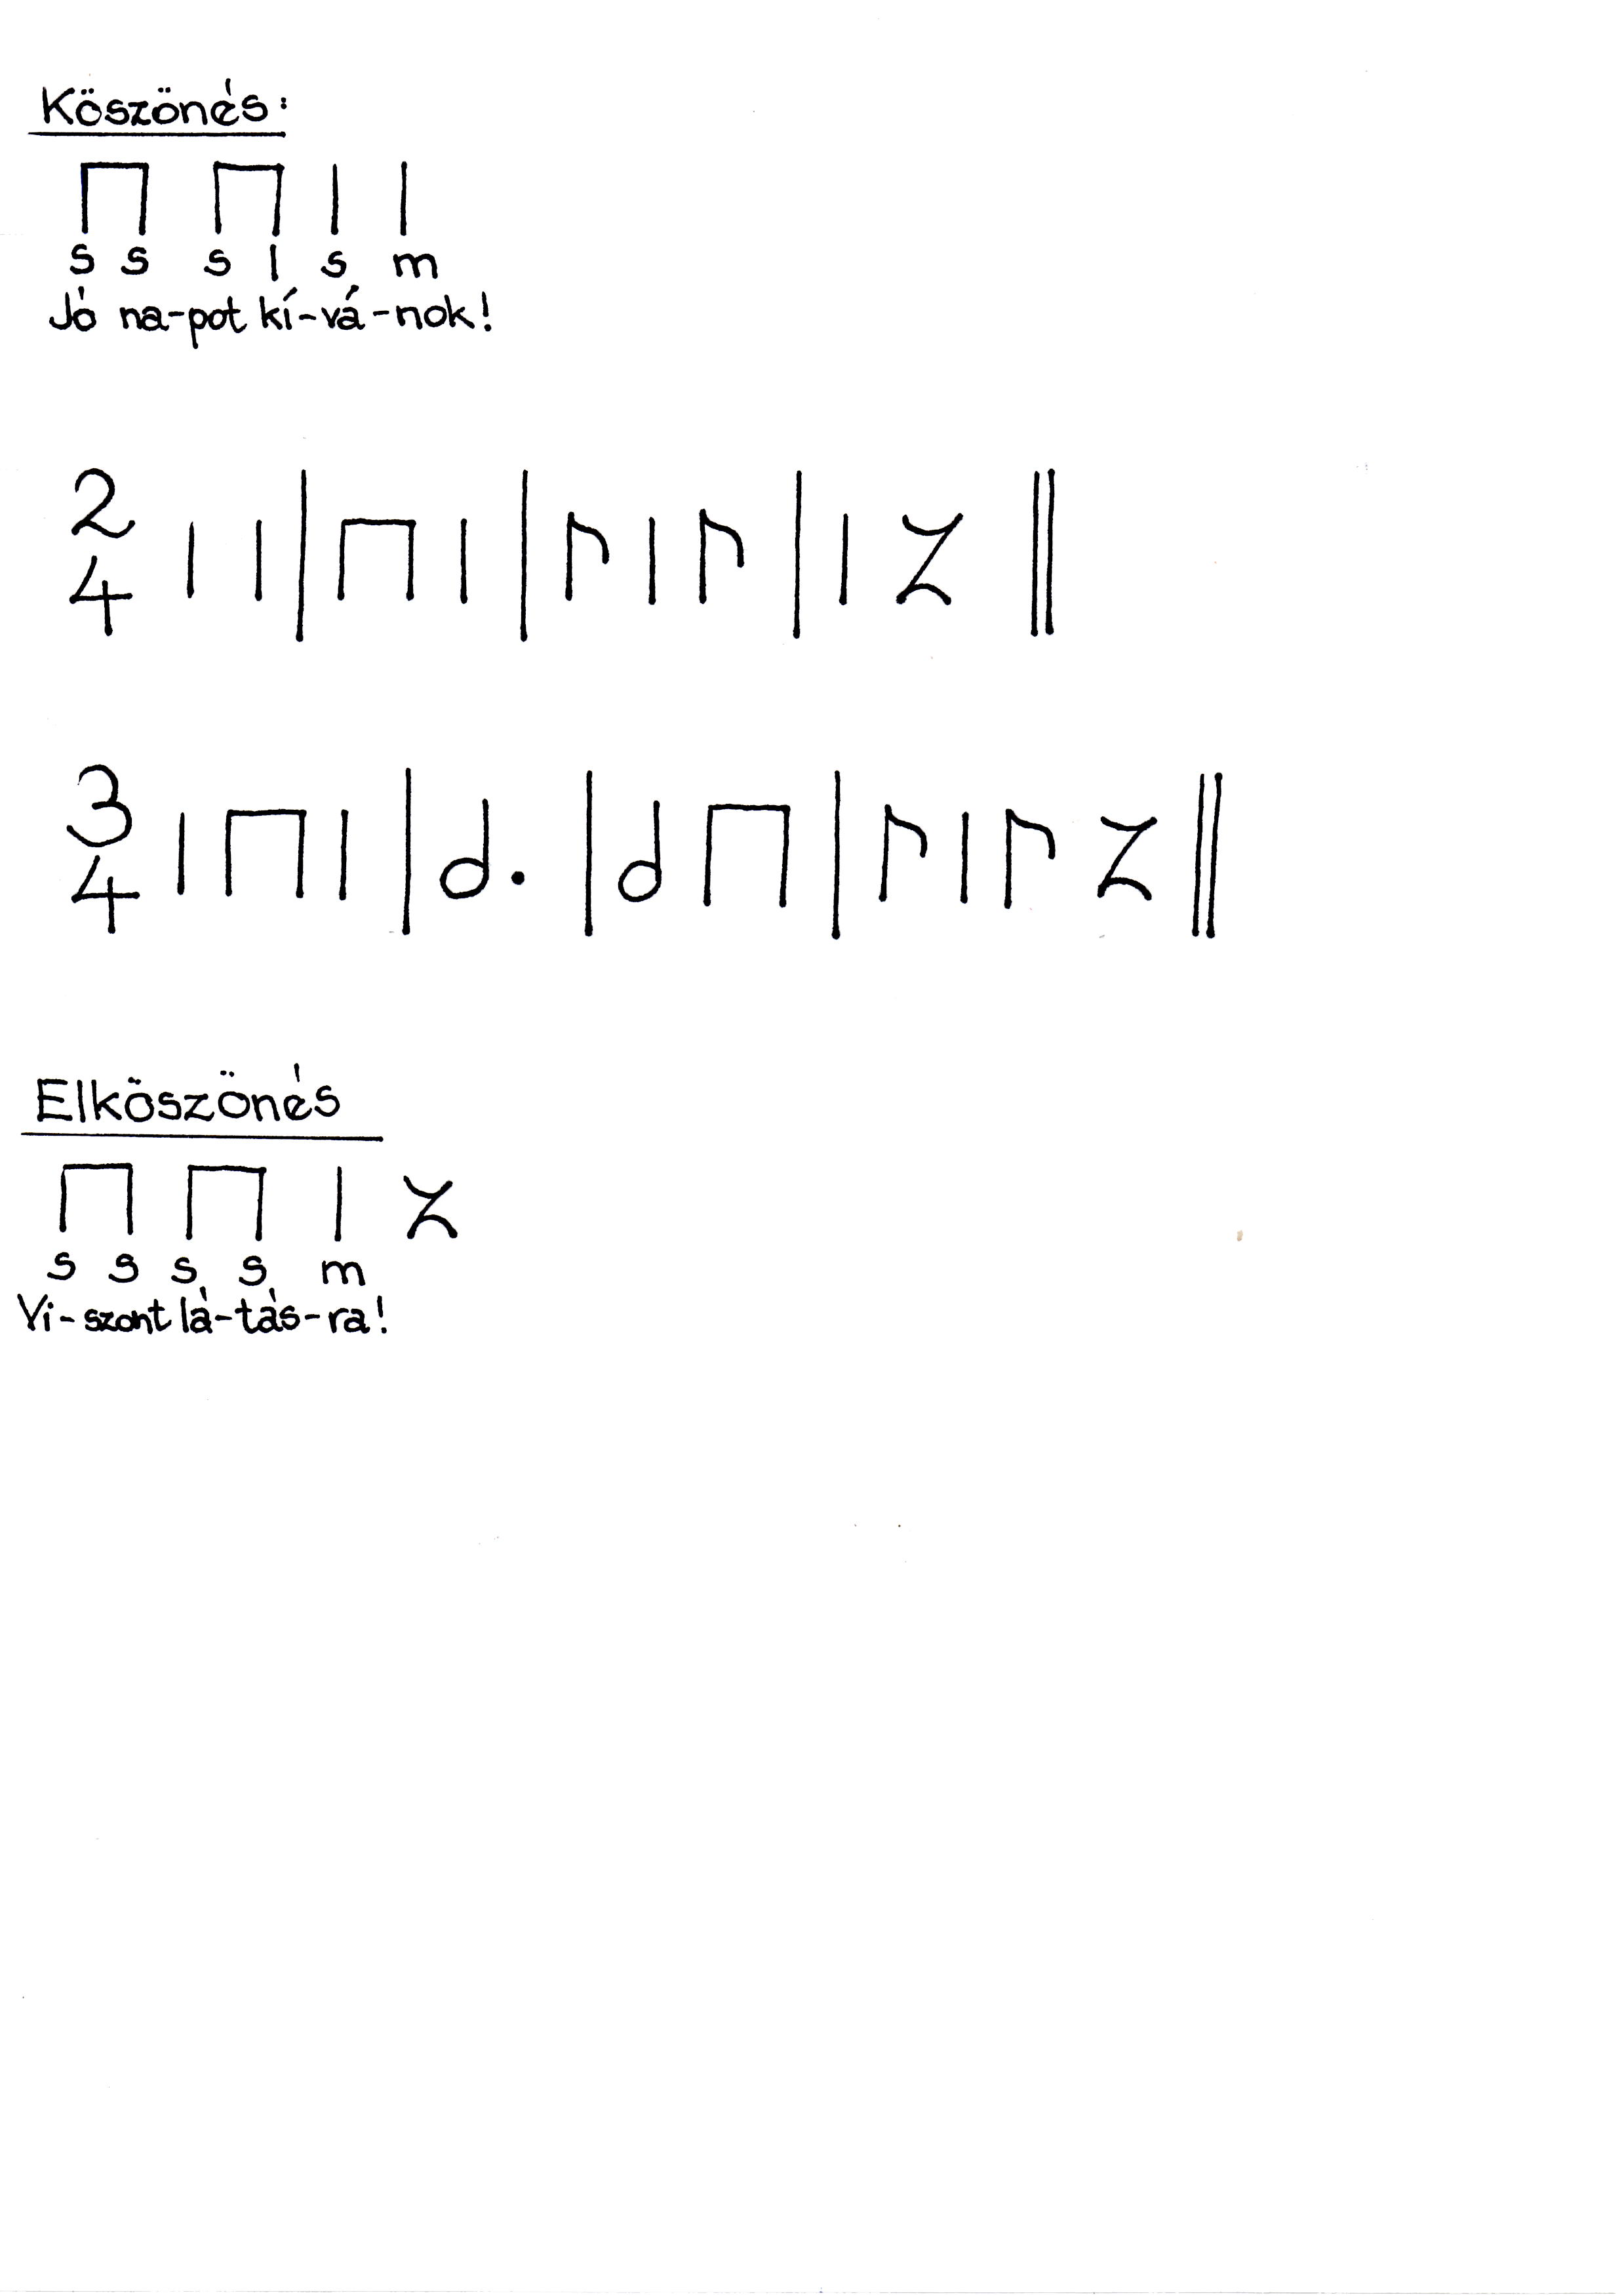 Köszönés:
s s s l s m
Jó na-pot kí-vá-nok!
2
4
3
4
Elköszönés
s s s s m
Vi-szont lá-tás-ra!